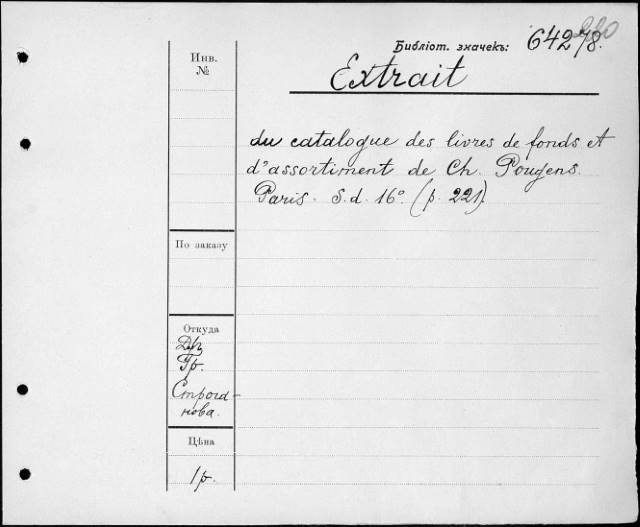 220
Библіот. значекъ: 64278.
Инв.
№
Extrait
du catalogue des livres de fonds et
d'assortiment de Ch. Pougens.
Paris. S.d. 16°. (p. 221).
По заказу
Откуда
Гр.
Строга-
нова.
Цѣна
1 р.